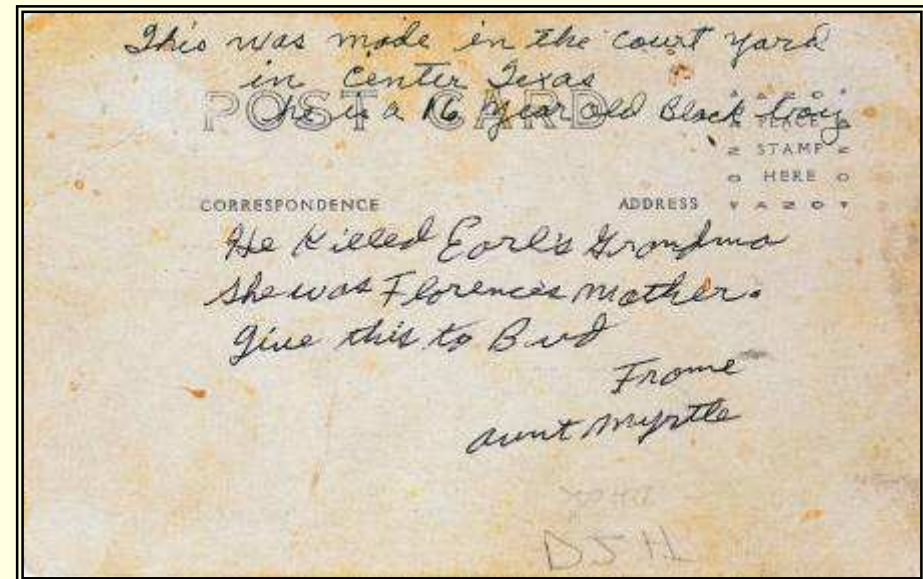 This was made in the court yard
in Center Texas
he is a 16 year old Black boy
POST CARD
PLACE
STAMP
HERE
CORRESPONDENCE
ADDRESS
He Killed Earl's Grandma
She was Florence's Mother.
Give this to Bud
From
Aunt Myrtle
DJH